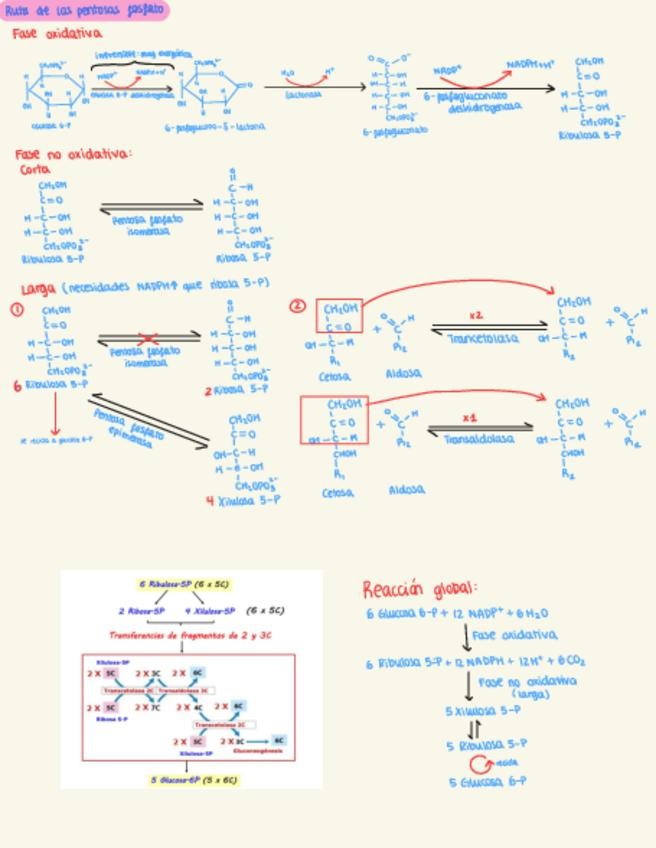 Ruta de las pentosas fosfato
Fase oxidativa
irreversible: muy exergónica
NADP⁺ NADPH+H⁺
glucosa 6-P deshidrogenasa
Glucosa 6-P
6-fosfogluco-δ-lactona
H₂O H⁺
lactonasa
6-fosfogluconato
NADP⁺ NADPH+H⁺
6-fosfogluconato
deshidrogenasa
CH₂OH
C=O
H-C-OH
H-C-OH
CH₂OPO₃²⁻
Ribulosa 5-P
Fase no oxidativa:
Corta
CH₂OH
C=O
H-C-OH
H-C-OH
CH₂OPO₃²⁻
Ribulosa 5-P
Pentosa fosfato
isomerasa
C-H
H-C-OH
H-C-OH
H-C-OH
CH₂OPO₃²⁻
Ribosa 5-P
Larga (necesidades NADPH↑ que ribosa 5-P)
1
CH₂OH
C=O
H-C-OH
H-C-OH
CH₂OPO₃²⁻
6 Ribulosa 5-P
se recicla a glucosa 6-P
Pentosa fosfato
isomerasa
C-H
H-C-OH
H-C-OH
H-C-OH
CH₂OPO₃²⁻
2 Ribosa 5-P
Pentosa fosfato
epimerasa
CH₂OH
C=O
OH-C-H
H-C-OH
CH₂OPO₃²⁻
4 Xilulosa 5-P
2
CH₂OH
C=O
OH-C-H
R₁
Cetosa
+ O C H
R₂
Aldosa
x2
Trancetolasa
CH₂OH
C=O
OH-C-H
R₂
+ O C H
R₁
CH₂OH
C=O
OH-C-H
CHOH
R₁
Cetosa
+ O C H
R₂
Aldosa
x1
Transaldolasa
CH₂OH
C=O
OH-C-H
CHOH
R₂
+ O C H
R₁
6 Ribulosa-5P (6 x 5C)
2 Ribosa-5P 4 Xilulosa-5P (6 x 5C)
Transferencias de fragmentos de 2 y 3C
Xilulosa-5P
2 X 5C 2 X 3C 2 X 6C
Transcetolasa 2C Transaldolasa 3C
2 X 5C 2 X 7C 2 X 4C 2 X 6C
Ribosa 5-P
Transcetolasa 2C
2 X 5C 2 X 3C 6C
Xilulosa-5P Gluconeogénesis
5 Glucosa-6P (5 x 6C)
Reacción global:
6 Glucosa 6-P + 12 NADP⁺ + 6 H₂O
Fase oxidativa
6 Ribulosa 5-P + 12 NADPH + 12H⁺ + 6 CO₂
Fase no oxidativa
(larga)
5 Xilulosa 5-P
5 Ribulosa 5-P
5 Glucosa 6-P